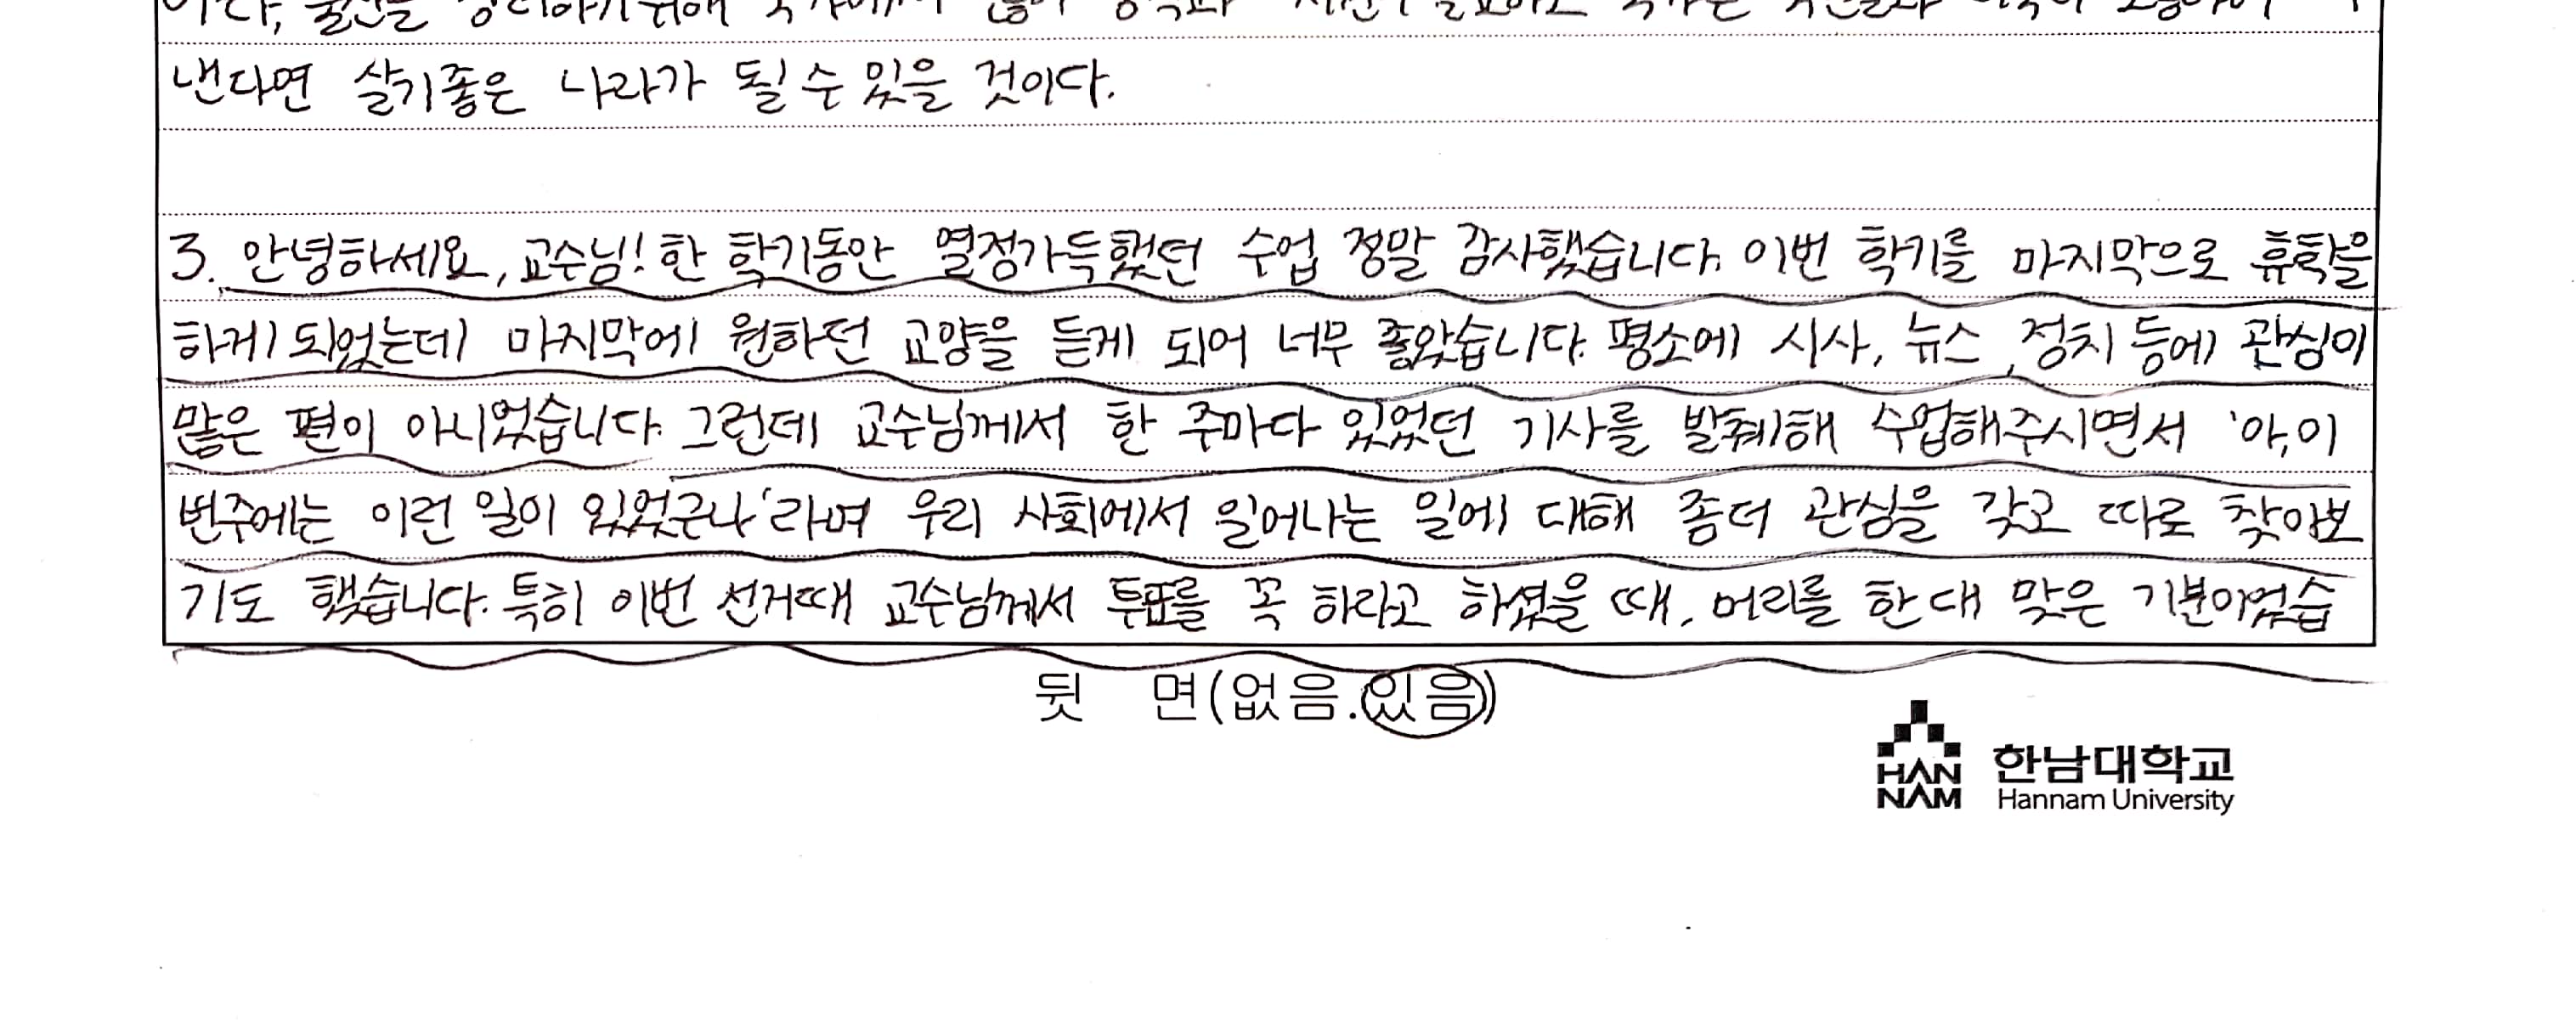 낸다면 살기좋은 나라가 될 수 있을 것이다.
3. 안녕하세요, 교수님! 한 학기동안 열정가득했던 수업 정말 감사했습니다. 이번 학기를 마지막으로 휴학을
하게 되었는데 마지막에 원하던 교양을 듣게 되어 너무 좋았습니다. 평소에 시사, 뉴스, 정치 등에 관심이
많은 편이 아니었습니다. 그런데 교수님께서 한 주마다 있었던 기사를 발췌해 수업해주시면서 '아, 이
번주에는 이런 일이 있었구나'라며 우리 사회에서 일어나는 일에 대해 좀더 관심을 갖고 따로 찾아보
기도 했습니다. 특히 이번 선거때 교수님께서 투표를 꼭 하라고 하셨을 때, 머리를 한대 맞은 기분이었습
뒷 면(없음.있음)
HAN
NAM
한남대학교
Hannam University